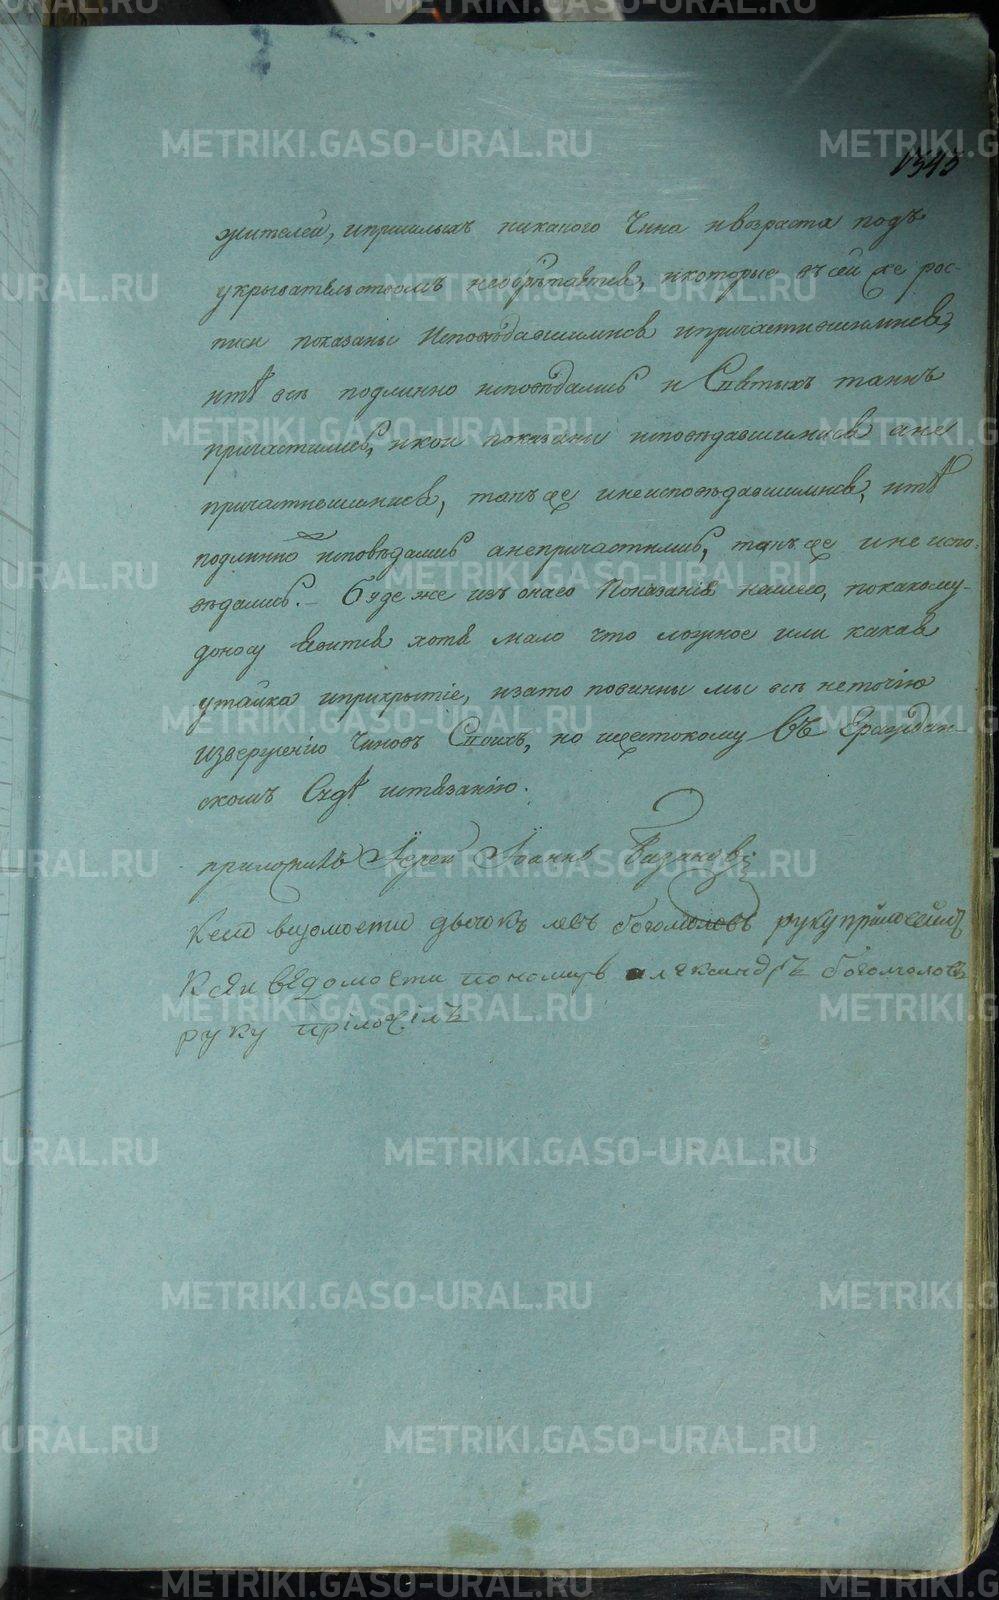 1343
жителей, ипришлыхъ никакого Чина ивозраста подъ
укрывательствомъ необрѣтается, икоторые въ сей же рос-
писи показаны Исповѣдавшимися ипричастившимися,
итѣ всѣ подлинно исповѣдались и Святыхъ таинъ
причастились, икои показаны исповѣдавшимися ане
причастившимися, такъ же инеисповѣдавшимися, итѣ
подлинно исповѣдались анепричастились, такъ же и не испо-
вѣдались. – Буде же изъ онаго Показанія нашего, покакому-
доносу явится хотя мало что ложное или какая
утайка иприкрытіе, изато повинны мы всѣ неточію
изверженію Чиновъ Своихъ, но ижестокому Въ Гражданс-
комъ Судѣ истязанію.
приложилъ Іерей Іоаннъ
Ксей ведомости дьячокъ левъ богомоловъ руку приложилъ
Ксеи ведомости пономарь александръ богомоловъ
руку приложилъ
METRIKI.GASO-URAL.RU